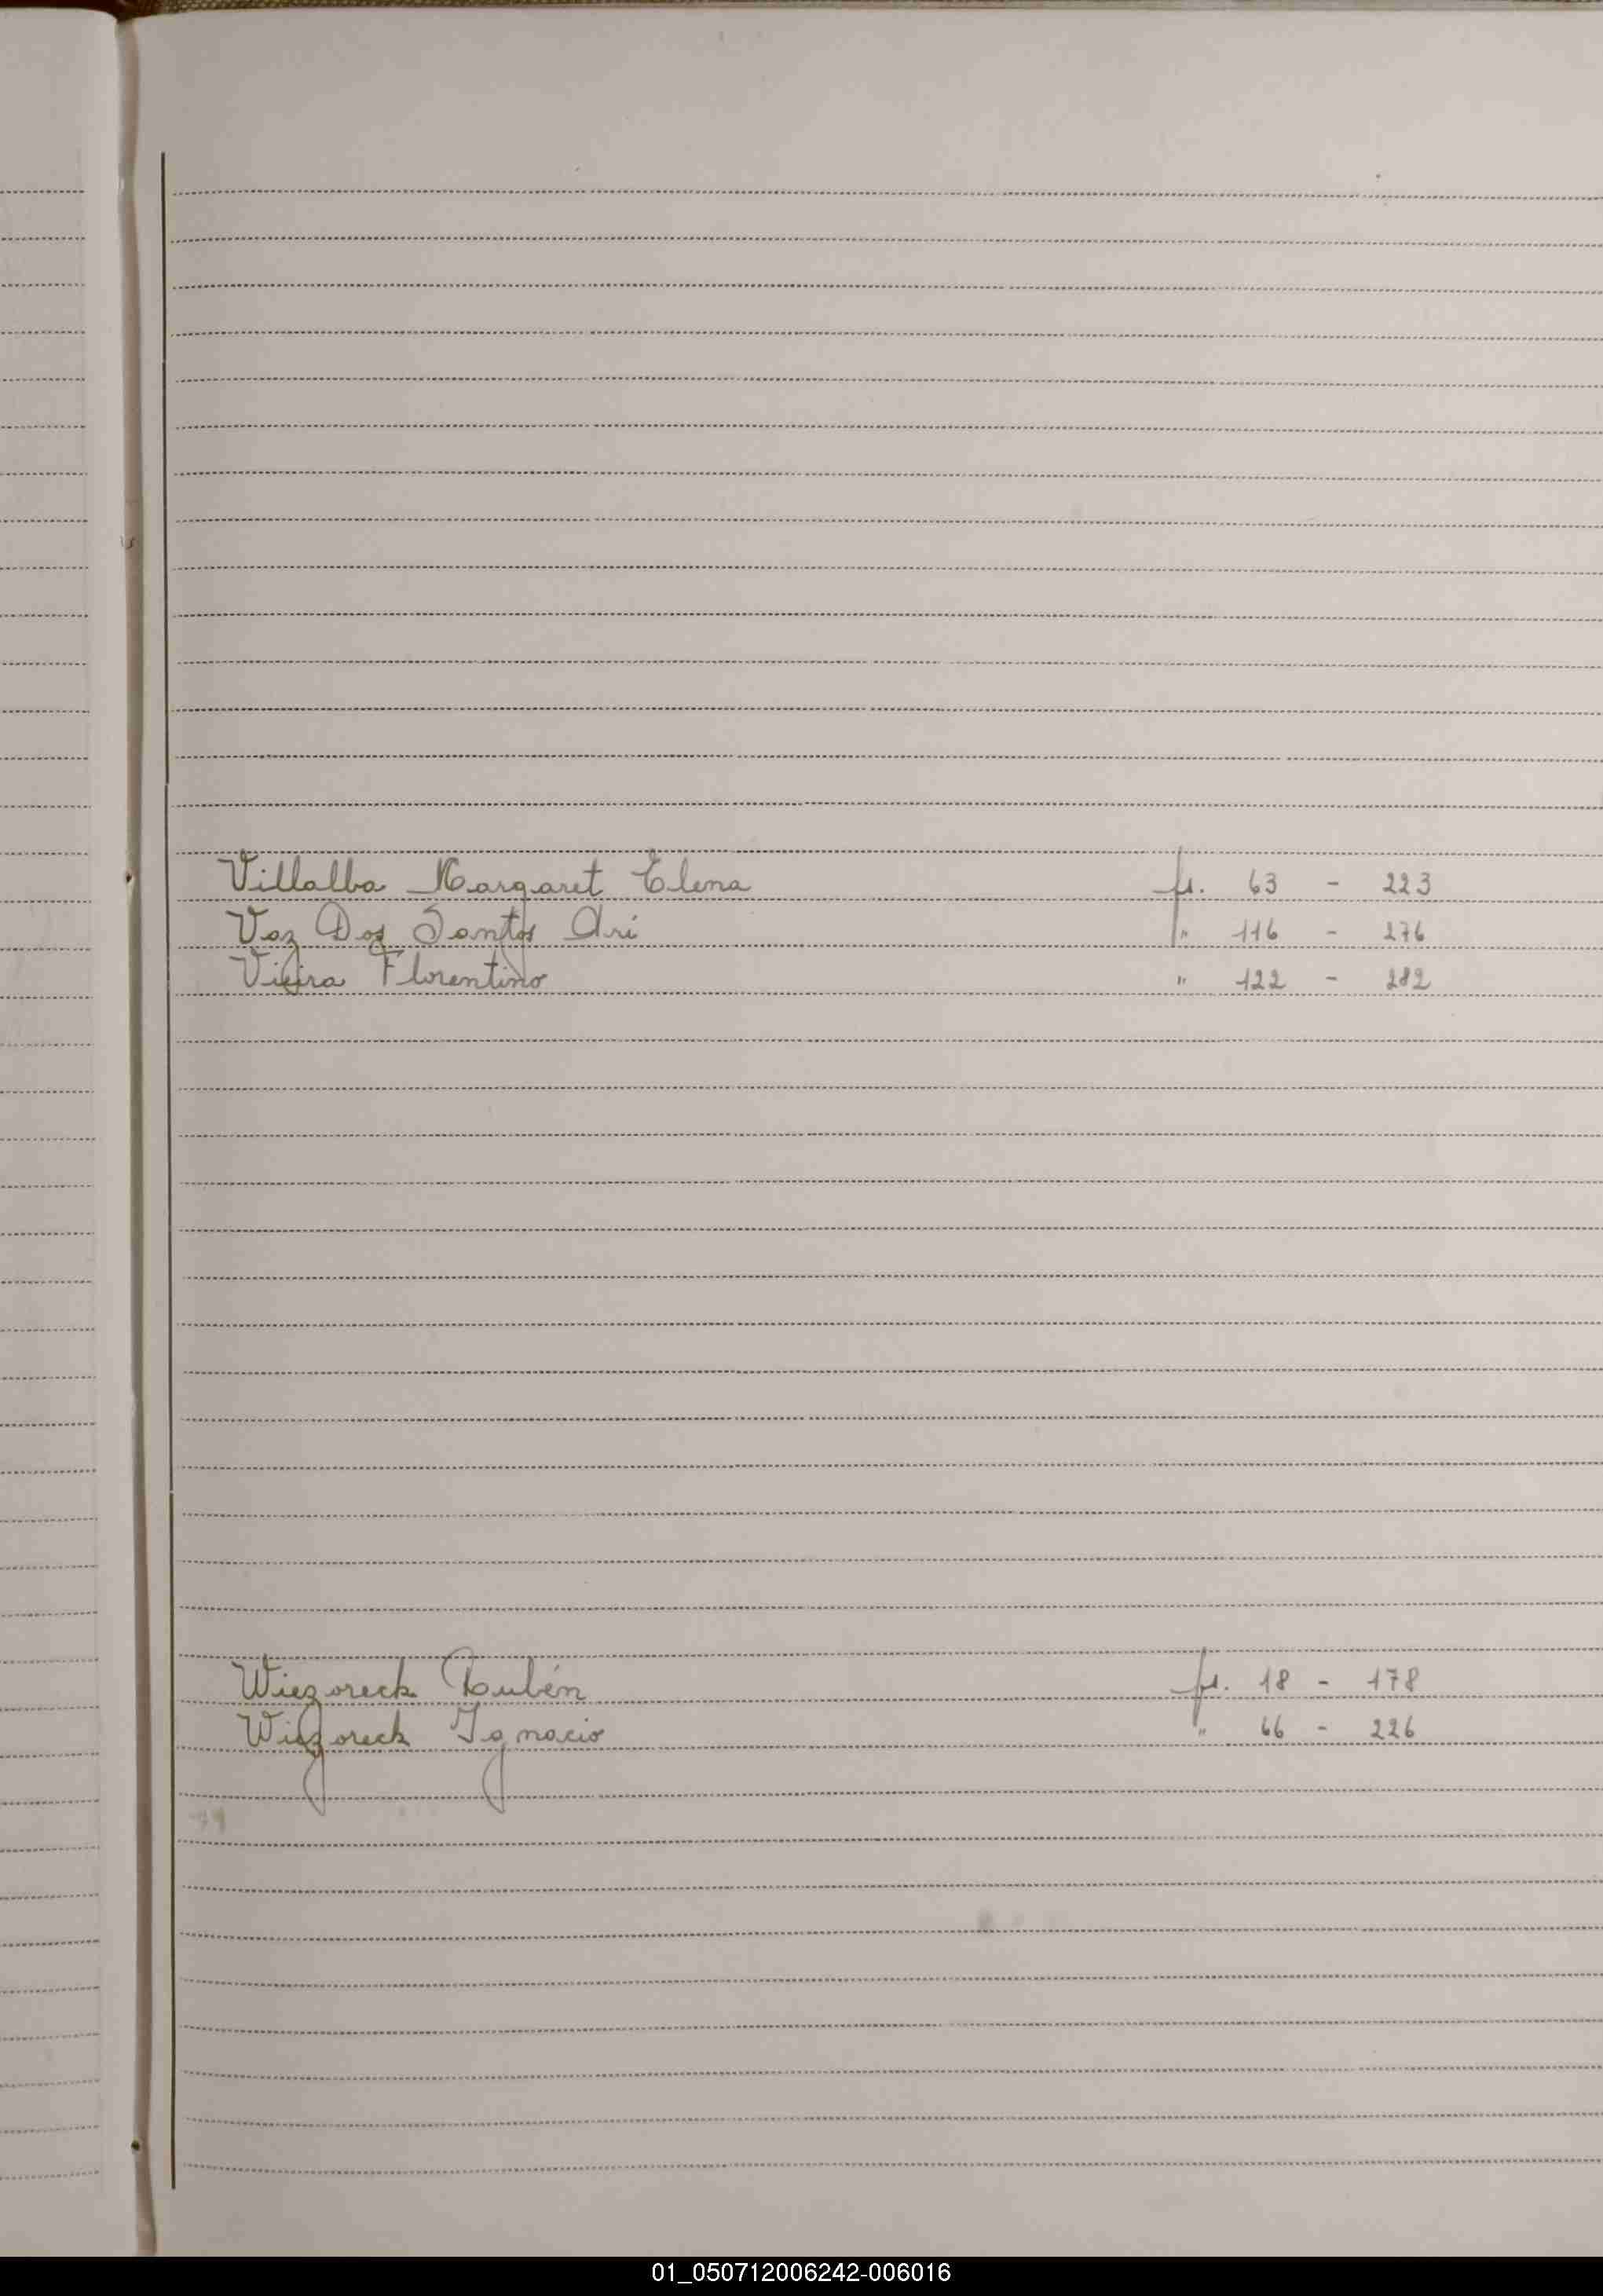 Villalba Margaret Elena fs. 63 - 223
Vaz Dos Santos Ari " 116 - 276
Vieira Florentino " 122 - 282
Wiezoreck Rubén fs. 18 - 178
Wiezoreck Ignacio " 66 - 226
01_050712006242-006016